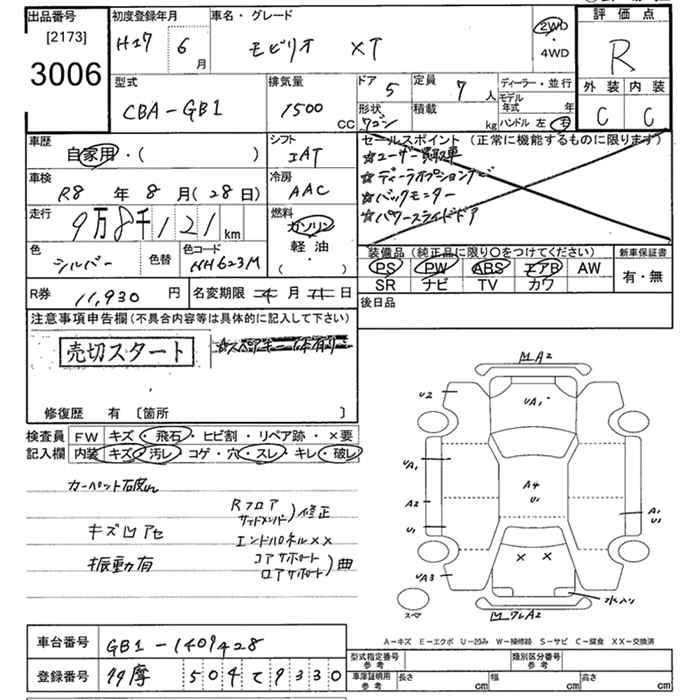 出品番号
[2173]
3006
初度登録年月
H17 年 6 月
車名・グレード
モビリオ XT
2WD
・
4WD
評価点
R
外装 内装
C C
型式
CBA-GB1
排気量
1500 cc
ドア 5
定員 7 人
形状
ワゴン
積載 kg
ディーラー・並行
モデル年式 年
ハンドル 左 右
車歴
自家用・( )
シフト
IAT
セールスポイント (正常に機能するものに限ります)
☆ユーザー買取車
☆ディーラオプションナビ
☆バックモニター
☆パワースライドドア
車検
R8 年 8 月 (28日)
冷房
AAC
走行
9万8千121 km
燃料
ガソリン
軽油・
( )
色
シルバー
色替
色コード
NH623M
装備品 (純正品に限り○をつけてください)
新車保証書
PS PW ABS エアB AW
SR ナビ TV カワ
有・無
R券 11,930 円
名変期限 月 日
後日品
注意事項申告欄 (不具合内容等は具体的に記入して下さい)
売切スタート
修復歴 有 [箇所 ]
検査員 FW キズ・飛石・ヒビ割・リペア跡・×要
記入欄 内装 キズ・汚レ・コゲ・穴・スレ・キレ・破レ
キズ凹アセ
振動有
Rフロア
サイドメンバー) 修正
エンドパネル××
コアサポート
ロアサポート) 曲
A2
U2
UA1
UA1
A2
U1
A4
U1
A1
U2
× ×
UA3
水入り
スペア
A2
A-キズ E-エクボ U-凹み W-補修跡 S-サビ C-腐食 XX-交換済
車台番号 GB1-1409428
登録番号 多摩 504 て 9330
型式指定番号
参考
類別区分番号
参考
車庫証明用
参考
長さ cm
幅 cm
高さ cm